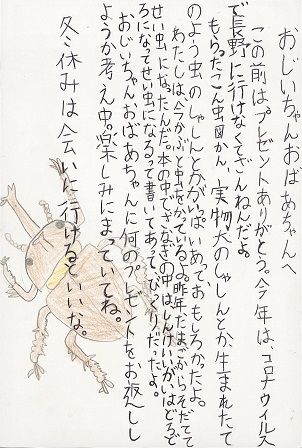 おじいちゃんおばあちゃんへ
この前は、プレゼントありがとう。今年は、コロナウイルス
で長野に行けなくてざんねんだよ。
もらったこん虫図かん、実物大のしゃしんとか生まれたて
のよう虫のしゃしんとかがいっぱいあっておもしろかったよ。
わたしは、今かぶと虫をかっているよ。昨年たまごからそだてて
せい虫になったんだ。本の中でさなぎの中は、しんけいいがいはどろど
ろになってせい虫になるって書いてあってびっくりだったよ。
おじいちゃんおばあちゃんに何のプレゼントをお返しし
ようか考え中。楽しみにまっていてね。
冬休みは会いに行けるといいな。